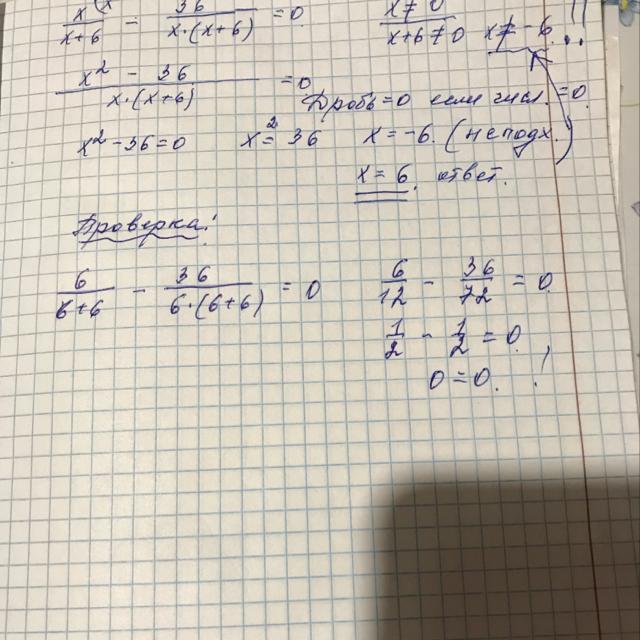 x/(x+6) - 36/(x·(x+6)) = 0
x ≠ 0
x+6 ≠ 0 x ≠ -6 !!
(x² - 36)/(x·(x+6)) = 0
Дробь = 0 если числ. = 0.
x² - 36 = 0 x² = 36 x = -6. (не подх.)
x = 6. ответ.
Проверка!
6/(6+6) - 36/(6·(6+6)) = 0 6/12 - 36/72 = 0
1/2 - 1/2 = 0
0 = 0. !